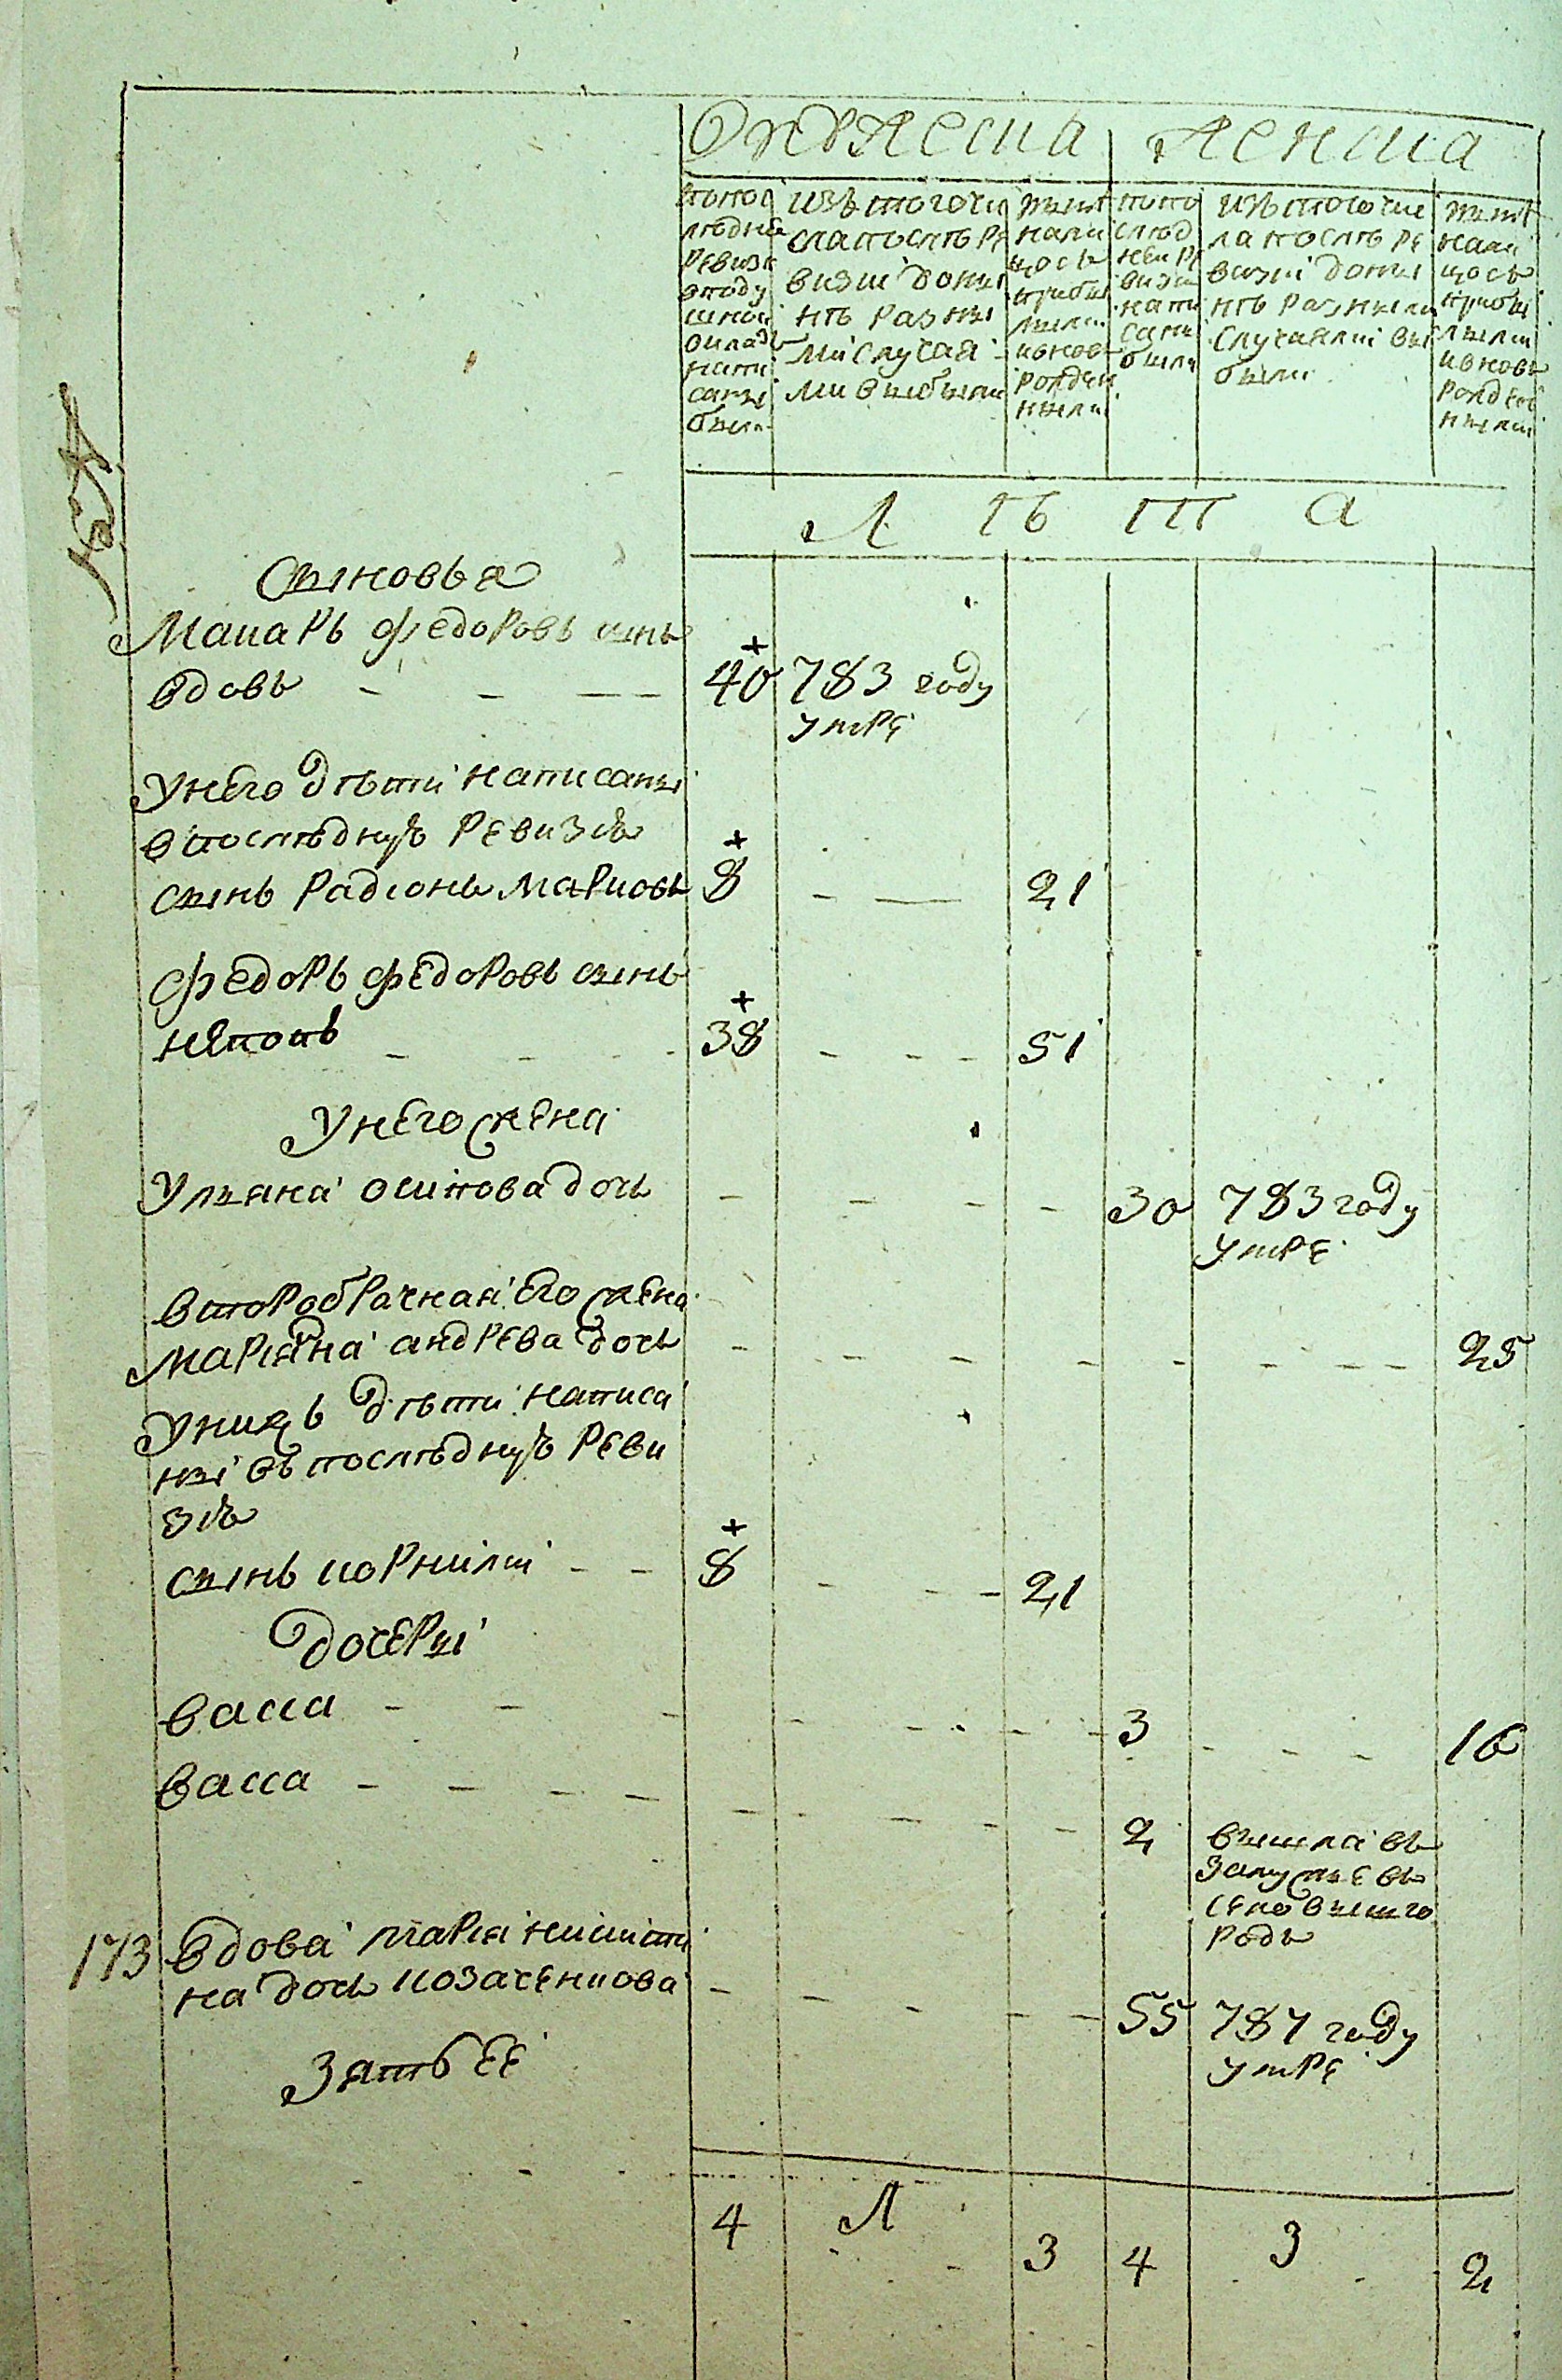 мужеска женска
по пос
ледне
ревизи
в поду
шной
окладъ
напи
саны
были
изъ того чи
сла послѣ ре
визии доны
нѣ разны
ми случая
ми выбыли
нали
цось
прибы
лыми
и вновь
рожден
ными
по по
след
ней ре
визи
напи
саны
были
изъ того чис
ла послѣ ре
визии доны
нѣ разными
случаями вы
были
нали
цось
прибы
лыми
и вновь
рожден
ными
Л ѣ т а
Сыновья
Макаръ федоровъ сынъ
вдовъ 40 783 году
умре
у него дѣти написаны
в последную ревизию
сынъ Радионъ Марковъ 8 21
федоръ федоровъ сынъ
38 51
у него жена
Ульяна осипова дочь 30 783 году
умре
второбрачная его жена
Марияна андрева дочь 25
у нихъ дѣти написа
ны въ последную реви
зию
сынъ корнилий 8 21
дочери
васса 3 16
васса 2 вышла въ
замужье въ
173 вдова мария никити
на дочь козаченкова 55 787 году
умре
Зять ее
4 1 3 4 3 2